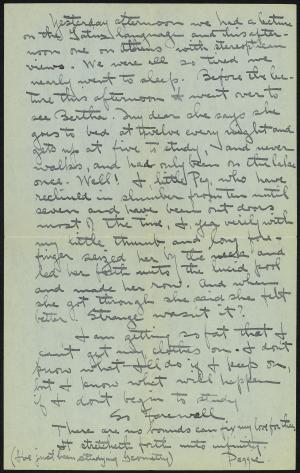 Yesterday afternoon we had a lecture
on the Latin language and this after-
noon one on Athens with stereoptican
views. We were all so tired we
nearly went to sleep. Before the lec-
ture this afternoon I went over to
see Bertha. My dear she says she
goes to bed at twelve every night and
gets up at five to study, and never
walks, and had only been on the lake
once. Well! I, little Peg, who have
reclined in slumber from ten until
seven and have been out doors
most of the time, I, yea verily with
my little thumb and long fore-
finger seized her by the neck and
led her forth unto the lucid pool
and made her row. And when
she got through she said she felt
better. Strange wasn't it?
I am getting so fat that I
can't get my clothes on. I don't
know what I'll do if I keep on,
but I know what will happen
if I don't begin to study
So Farewell
There are no bounds can fix my love for thee,
It stretcheth forth unto infinity.
(I've just been studying Geometry) Peggie